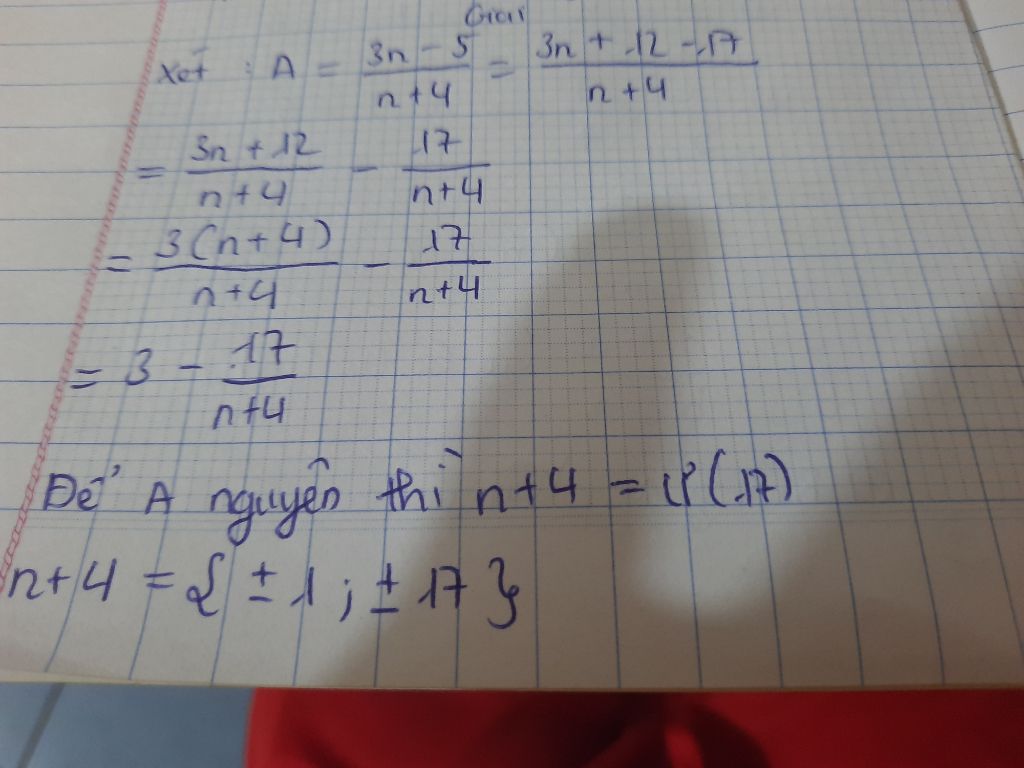 Giải
Xét : A = \frac{3n - 5}{n + 4} = \frac{3n + 12 - 17}{n + 4}
= \frac{3n + 12}{n + 4} - \frac{17}{n + 4}
= \frac{3(n + 4)}{n + 4} - \frac{17}{n + 4}
= 3 - \frac{17}{n + 4}
Để A nguyên thì n + 4 = Ư(17)
n + 4 = { ± 1 ; ± 17 }